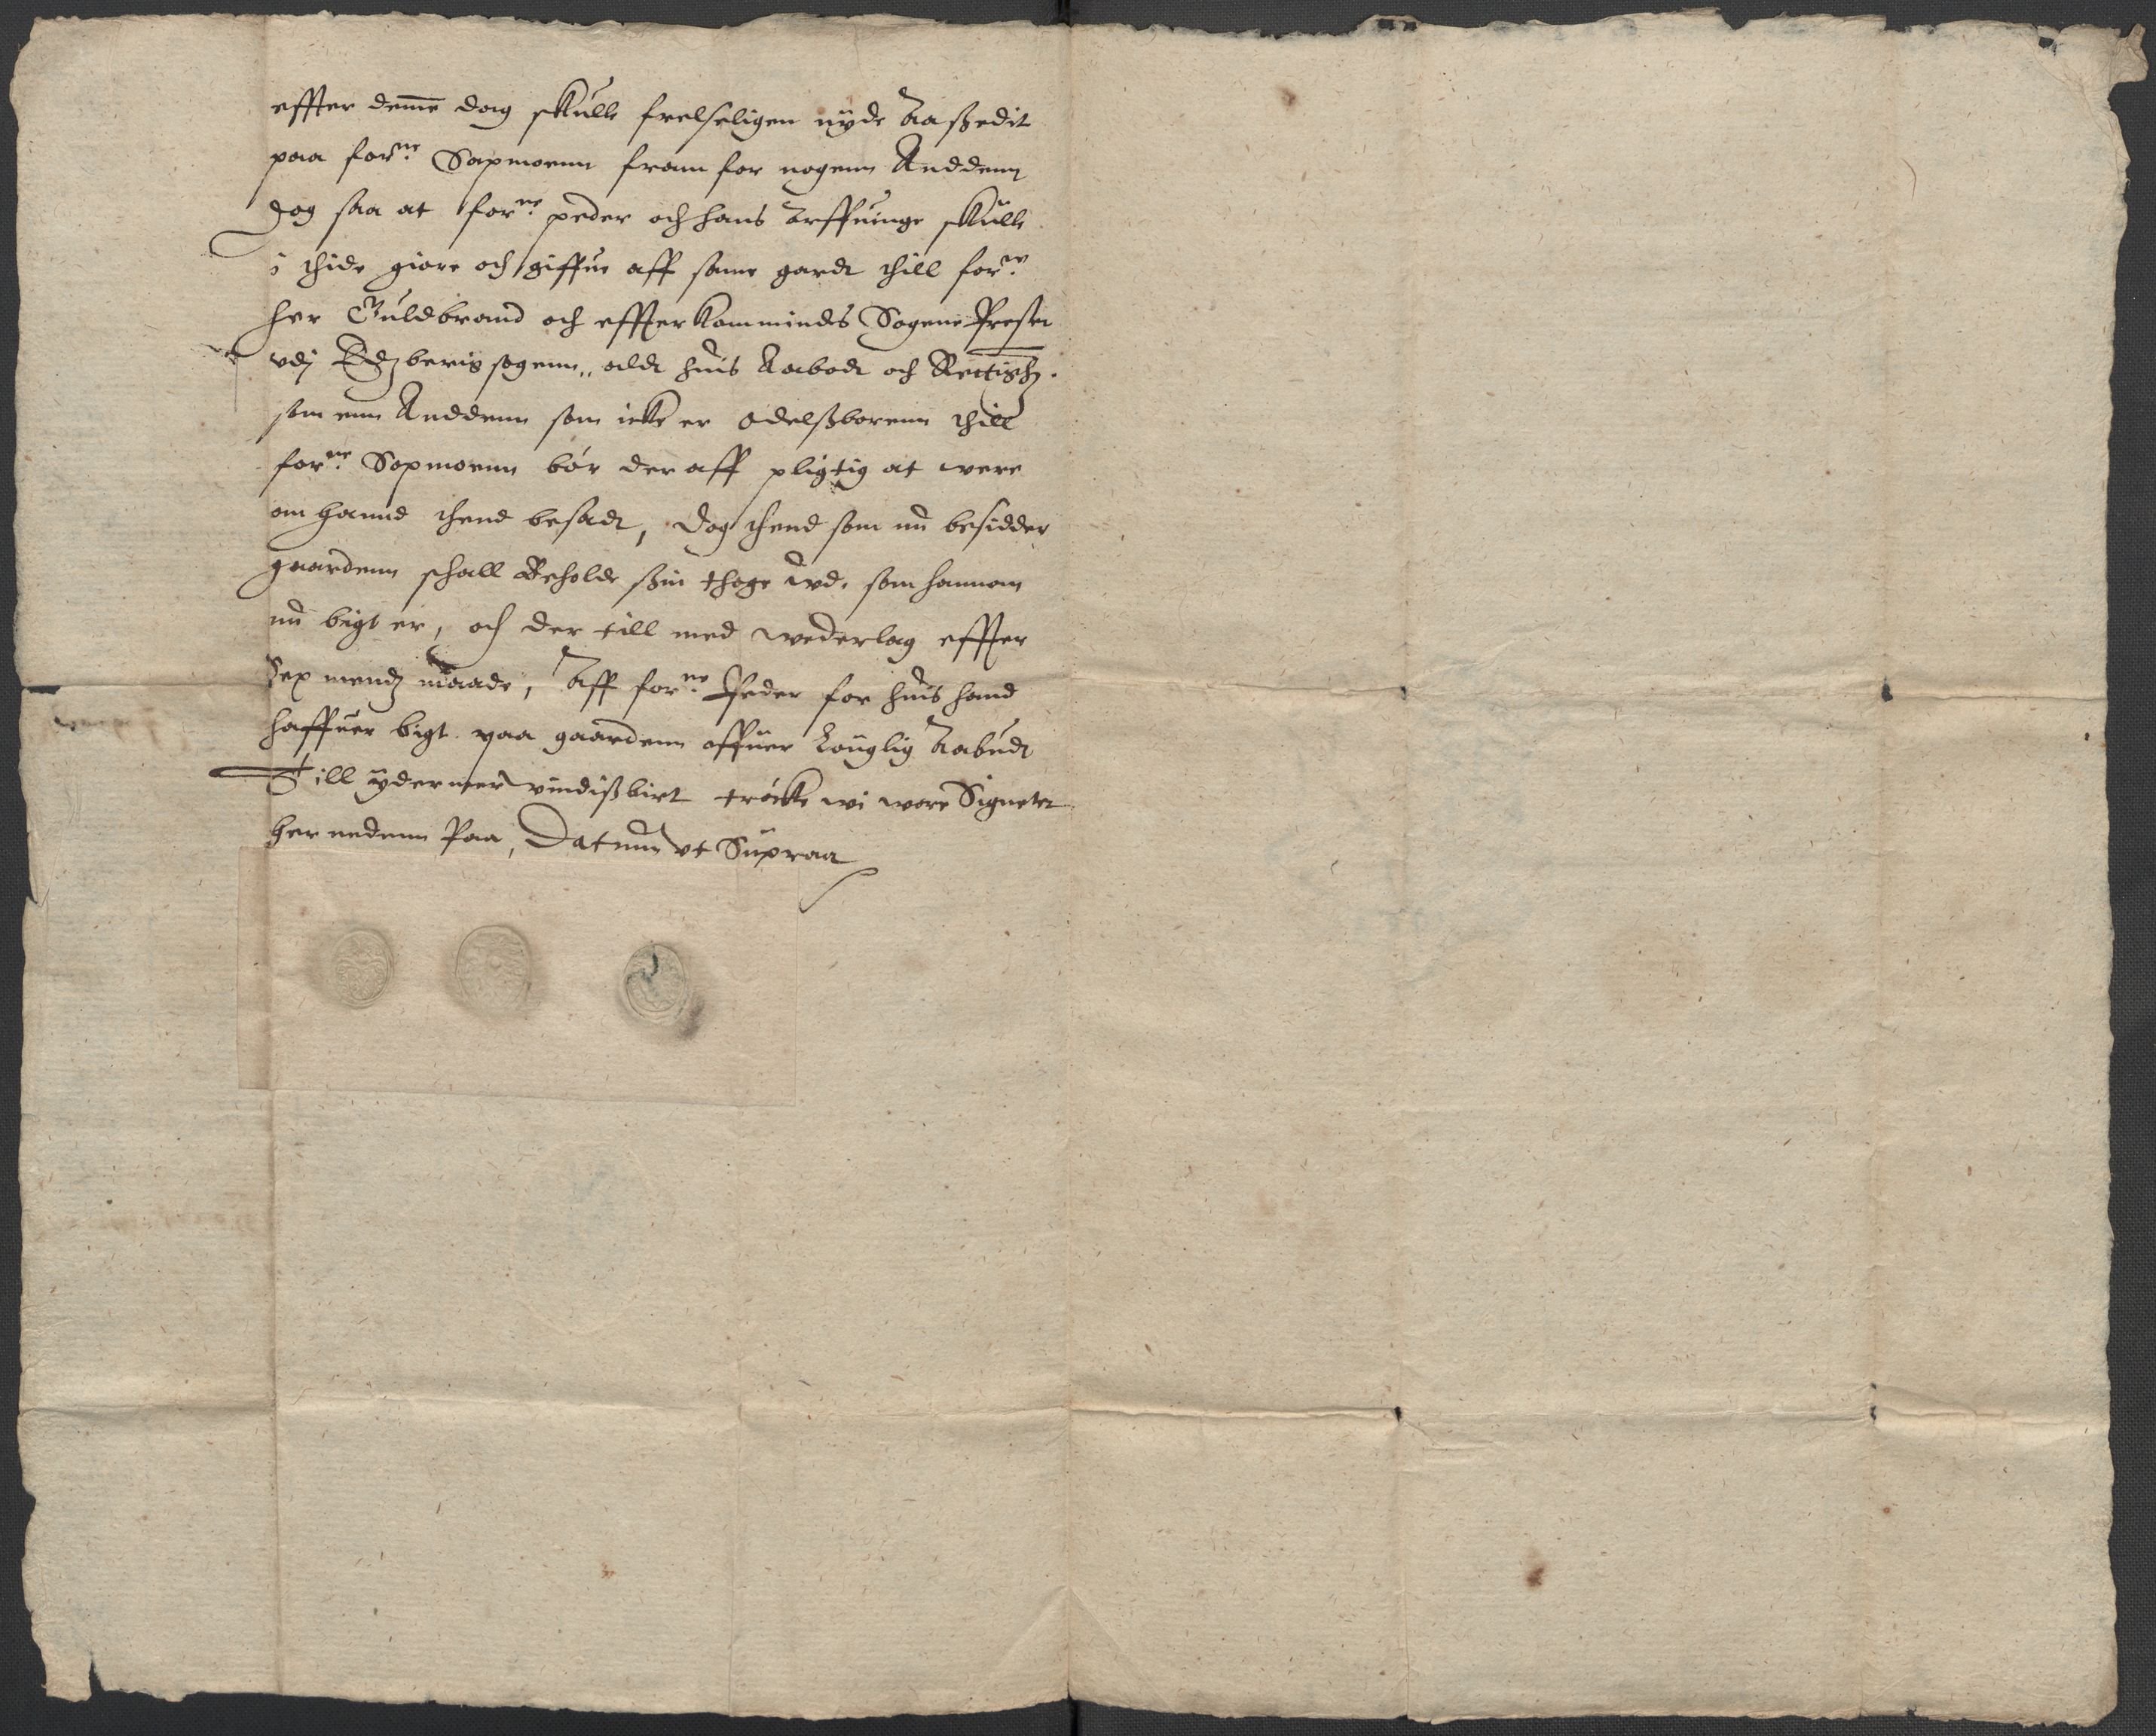 effter denne dag skulle frelseligen nÿde Aaßedit
paa forne: Sapmoenn fram for nogenn Anddenn
dog saa at forne: peder och hans Arffuinge skulle
i thide giøre och giffue aff same gardt thill forne:
her Guldbrand och effterkommindes Sogene Prester
vdj Edzberig sogenn,, aldt huis Aabodt och Rettigh.
som enn Anddenn som icke er odelßborenn thill
forne: Sopmoenn bør der aff pligtig at were
om hannd thend besadt, dog thend som nu besidder
gaardenn schall Beholde ßin thage wd, som hannom
nu bigt er, och der till med wederlag effter
Sex mendz maade, Aff forne: Peder for huis hand
haffuer bigt paa gaardenn offuer Louglig Aabudt
Till ÿdermer vindißbirt trøcke wi wore Signeter
her nedenn Paa, Datum vt Supraa